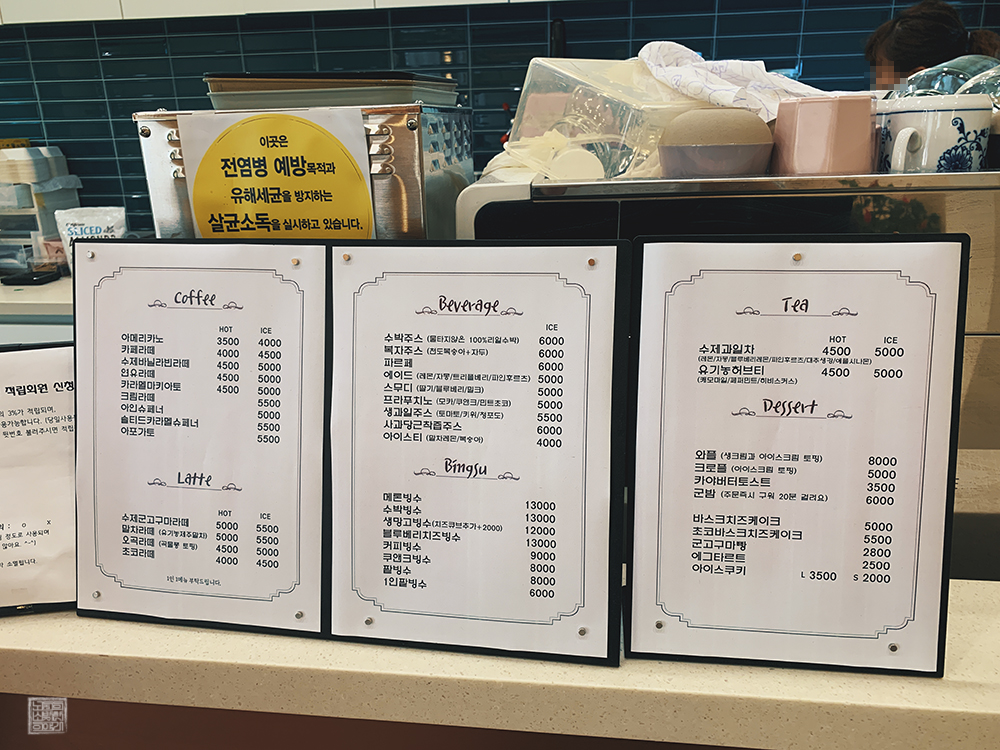 이곳은
전염병 예방목적과
유해세균을 방지하는
살균소독을 실시하고 있습니다.
SLICED
Coffee
HOT ICE
아메리카노 3500 4000
카페라떼 4000 4500
수제바닐라빈라떼 4500 5000
연유라떼 4500 5000
카라멜마키아토 4500 5000
크림라떼 5500
아인슈페너 5000
솔티드카라멜슈페너 5500
아포가토 5500
Latte
HOT ICE
수제군고구마라떼 5000 5500
말차라떼 (유기농제주말차) 5000 5500
오곡라떼 (곡물퐁 토핑) 4500 5000
초코라떼 4000 4500
1인 1메뉴 부탁드립니다.
Beverage
ICE
수박주스 (물타지않은 100%리얼수박) 6000
복자주스 (천도복숭아+자두) 6000
파르페 6000
에이드 (레몬/자몽/트리플베리/파인후르츠) 5000
스무디 (딸기/블루베리/밀크) 5000
프라푸치노 (모카/쿠앤크/민트초코) 5000
생과일주스 (토마토/키위/청포도) 5500
사과당근착즙주스 6000
아이스티 (말차레몬/복숭아) 4000
Bingsu
메론빙수 13000
수박빙수 13000
생망고빙수 (치즈큐브추가+2000) 12000
블루베리치즈빙수 13000
커피빙수 9000
쿠앤크빙수 8000
팥빙수 8000
1인팥빙수 6000
Tea
HOT ICE
수제과일차 4500 5000
(레몬/자몽/블루베리레몬/파인후르츠/대추생강/애플시나몬)
유기농허브티 4500 5000
(캐모마일/페퍼민트/히비스커스)
Dessert
와플 (생크림과 아이스크림 토핑) 8000
크로플 (아이스크림 토핑) 5000
카야버터토스트 3500
군밤 (주문즉시 구워 20분 걸려요) 6000
바스크치즈케이크 5000
초코바스크치즈케이크 5500
군고구마빵 2800
에그타르트 2500
아이스쿠키 L 3500 S 2000
적립회원 신청
3%가 적립되며,
가능합니다. (당일사용
뒷번호 불러주시면 적립
O X
정도로 사용되며
않아요. ^-^)
소멸됩니다.